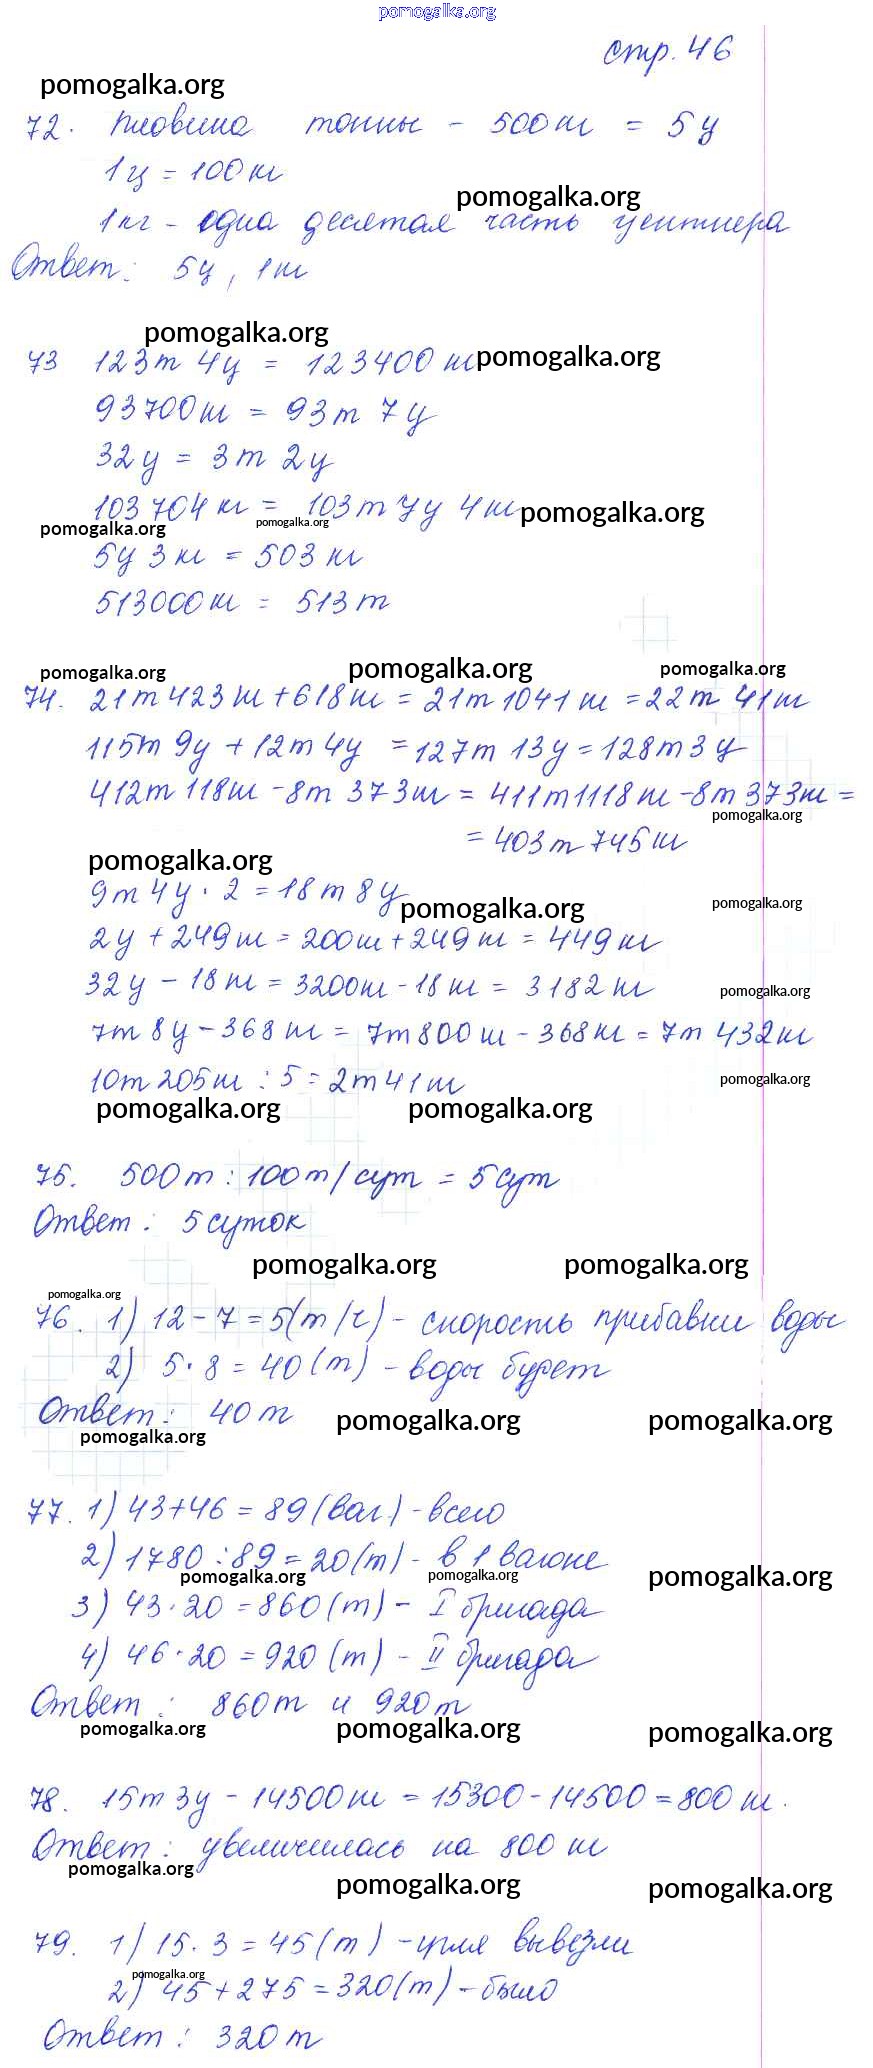 pomogalka.org
стр. 46
pomogalka.org
72. Половина тонны - 500 кг = 5 ц
1 ц = 100 кг
pomogalka.org
1 кг - одна десятая часть центнера
Ответ: 5 ц, 1 кг
pomogalka.org
73 123 т 4 ц = 123400 кг pomogalka.org
93700 кг = 93 т 7 ц
32 ц = 3 т 2 ц
103 704 кг = 103 т 7 ц 4 кг pomogalka.org
pomogalka.org pomogalka.org
5 ц 3 кг = 503 кг
513000 кг = 513 т
pomogalka.org pomogalka.org pomogalka.org
74. 21 т 423 кг + 618 кг = 21 т 1041 кг = 22 т 41 кг
115 т 9 ц + 12 т 4 ц = 127 т 13 ц = 128 т 3 ц
412 т 118 кг - 8 т 373 кг = 411 т 1118 кг - 8 т 373 кг =
pomogalka.org
= 403 т 745 кг
pomogalka.org
9 т 4 ц · 2 = 18 т 8 ц
pomogalka.org pomogalka.org
2 ц + 249 кг = 200 кг + 249 кг = 449 кг
32 ц - 18 кг = 3200 кг - 18 кг = 3182 кг pomogalka.org
7 т 8 ц - 368 кг = 7 т 800 кг - 368 кг = 7 т 432 кг
10 т 205 кг : 5 = 2 т 41 кг pomogalka.org
pomogalka.org pomogalka.org
75. 500 т : 100 т/сут = 5 сут
Ответ: 5 суток
pomogalka.org pomogalka.org
pomogalka.org
76. 1) 12 - 7 = 5 (т/ч) - скорость прибавки воды
2) 5 · 8 = 40 (т) - воды будет
Ответ: 40 т pomogalka.org pomogalka.org
pomogalka.org
77. 1) 43 + 46 = 89 (ваг.) - всего
2) 1780 : 89 = 20 (т) - в 1 вагоне
pomogalka.org pomogalka.org pomogalka.org
3) 43 · 20 = 860 (т) - I бригада
4) 46 · 20 = 920 (т) - II бригада
Ответ: 860 т и 920 т
pomogalka.org pomogalka.org pomogalka.org
78. 15 т 3 ц - 14500 кг = 15300 - 14500 = 800 кг.
Ответ: увеличилась на 800 кг
pomogalka.org pomogalka.org pomogalka.org
79. 1) 15 · 3 = 45 (т) - угля вывезли
pomogalka.org
2) 45 + 275 = 320 (т) - было
Ответ: 320 т